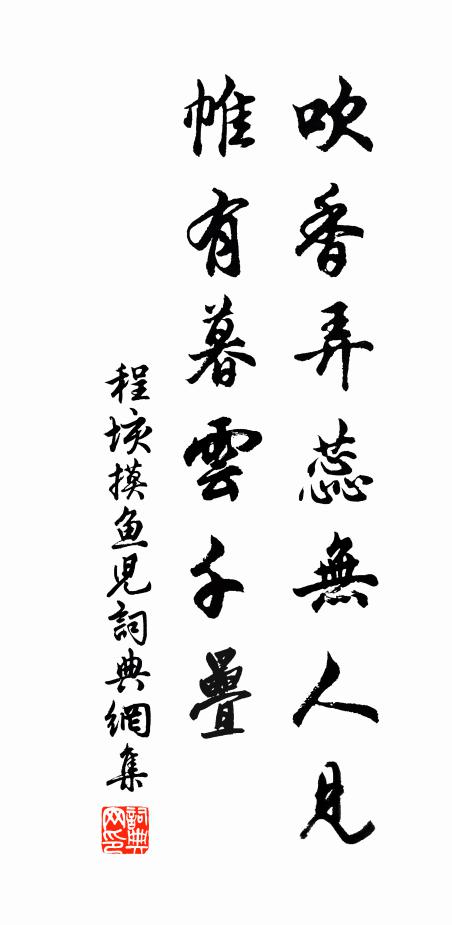 吹香弄蕊無人見
帷有暮雲千疊
程垓摸魚兒詞典網集
詞典网印